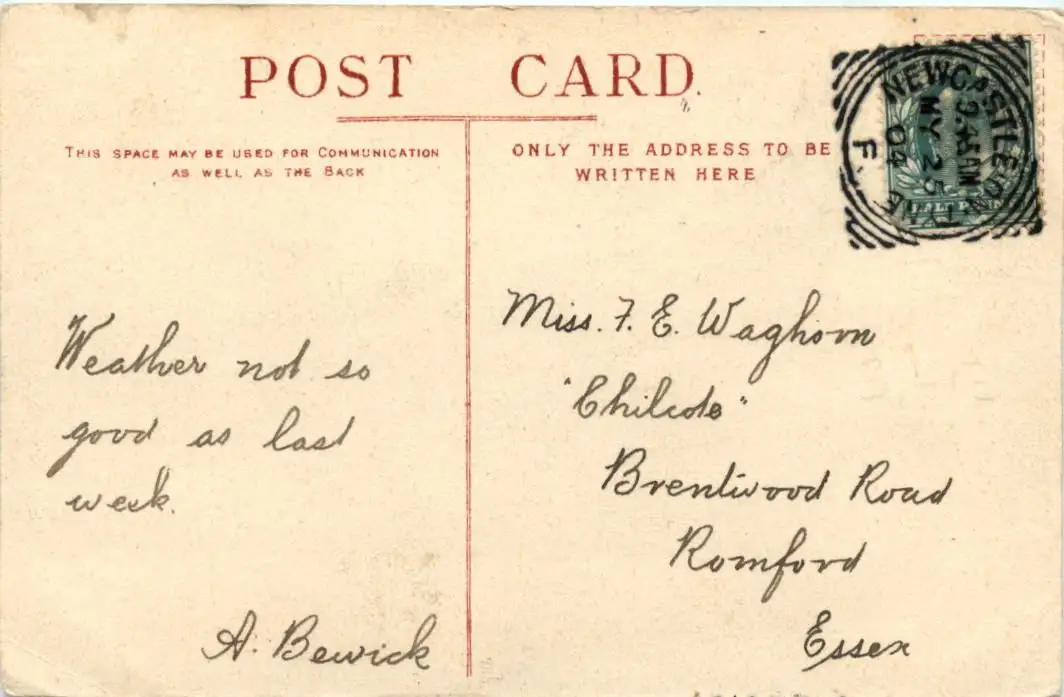 POST CARD.
THIS SPACE MAY BE USED FOR COMMUNICATION
AS WELL AS THE BACK
ONLY THE ADDRESS TO BE
WRITTEN HERE
NEWCASTLE-ON-TYNE
9.45 AM
MY 25
04
F.
HALF PENNY
Weather not so
good as last
week.
A. Bewick
Miss. F. E. Waghorn
"Chilcote"
Brentwood Road
Romford
Essex